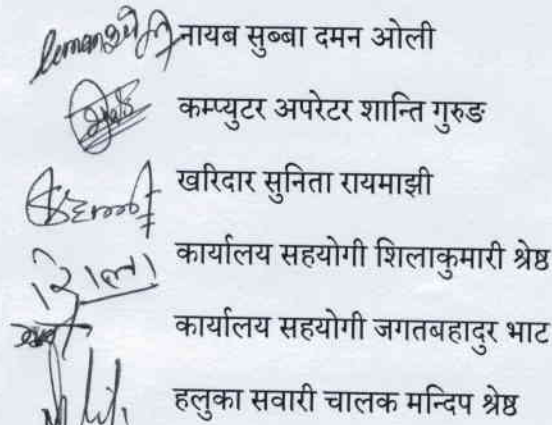 नायब सुब्बा दमन ओली
कम्प्युटर अपरेटर शान्ति गुरुङ
खरिदार सुनिता रायमाझी
शिला कार्यालय सहयोगी शिलाकुमारी श्रेष्ठ
कार्यालय सहयोगी जगतबहादुर भाट
हलुका सवारी चालक मन्दिप श्रेष्ठ